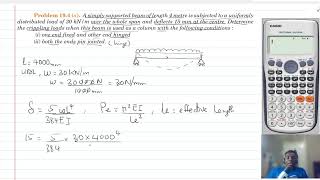 Problem 19.4 (c). A simply supported beam of length 4 metre is subjected to a uniformly
distributed load of 30 kN/m over the whole span and deflects 15 mm at the centre. Determine
the crippling loads when this beam is used as a column with the following conditions :
(i) one end fixed and other end hinged
(ii) both the ends pin jointed. (hinge)
l = 4000mm
UDL, w = 30kN/m
w = 30000N / 1000mm = 30N/mm
δ = 5wl⁴ / 384EI , Pe = π²EI / le² , le = effective length
15 = 5/384 × 30×4000⁴
CASIO